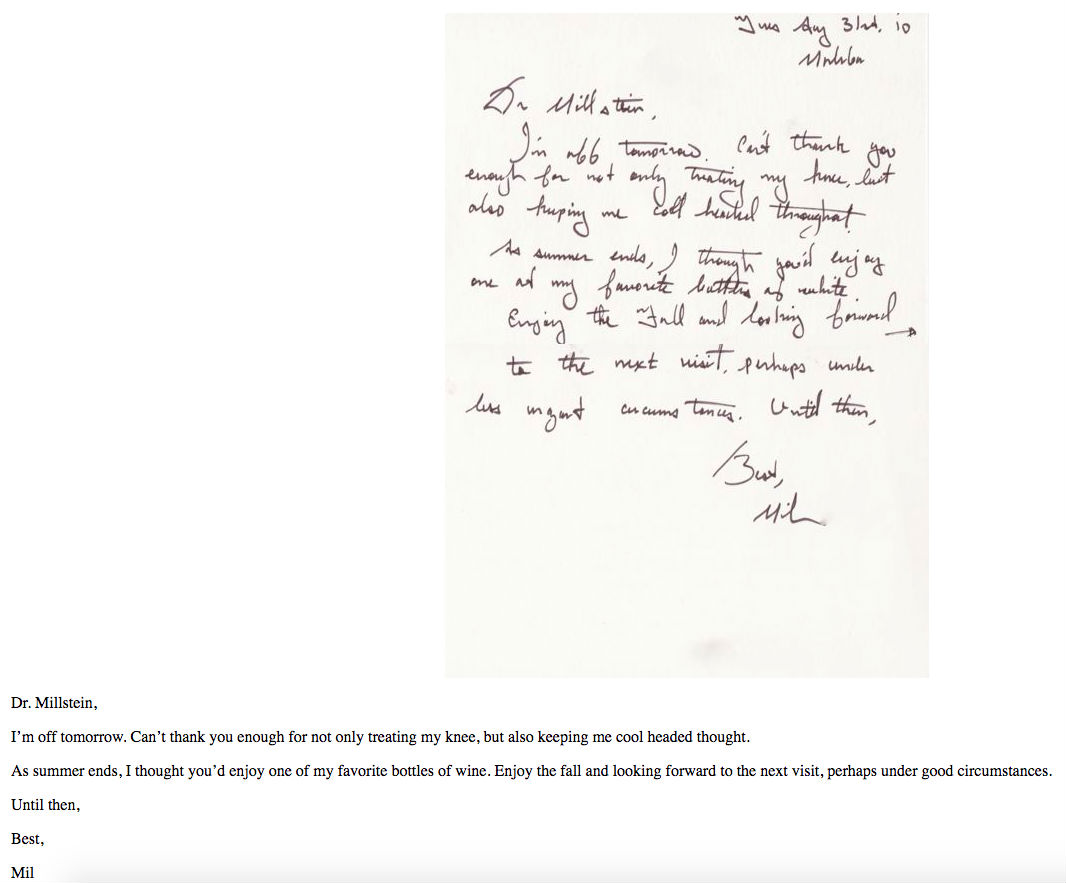 Tues Aug 31st, 10
Dr Millstein,
I'm off tomorrow. Can't thank you
enough for not only treating my knee, but
also keeping me cool headed throughout
As summer ends, I though you'd enjoy
one of my favorite bottles of white.
Enjoy the Fall and looking forward
to the next visit, perhaps under
less urgent circumstances. Until then,
Best,
Mil
Dr. Millstein,
I'm off tomorrow. Can't thank you enough for not only treating my knee, but also keeping me cool headed thought.
As summer ends, I thought you'd enjoy one of my favorite bottles of wine. Enjoy the fall and looking forward to the next visit, perhaps under good circumstances.
Until then,
Best,
Mil